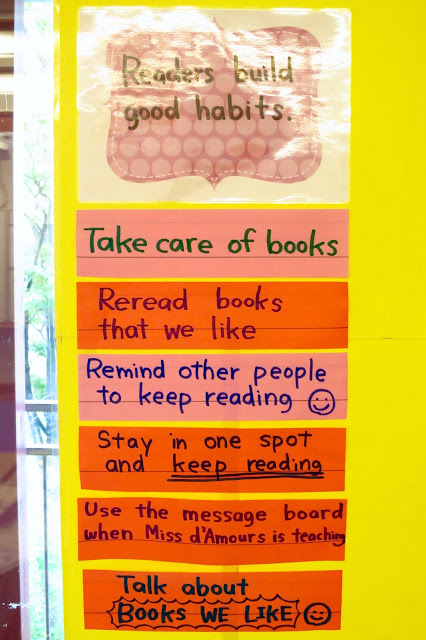 Readers build
good habits.
Take care of books
Reread books
that we like
Remind other people
to keep reading
Stay in one spot
and keep reading
Use the message board
when Miss d'Amours is teaching
Talk about
Books WE LIKE